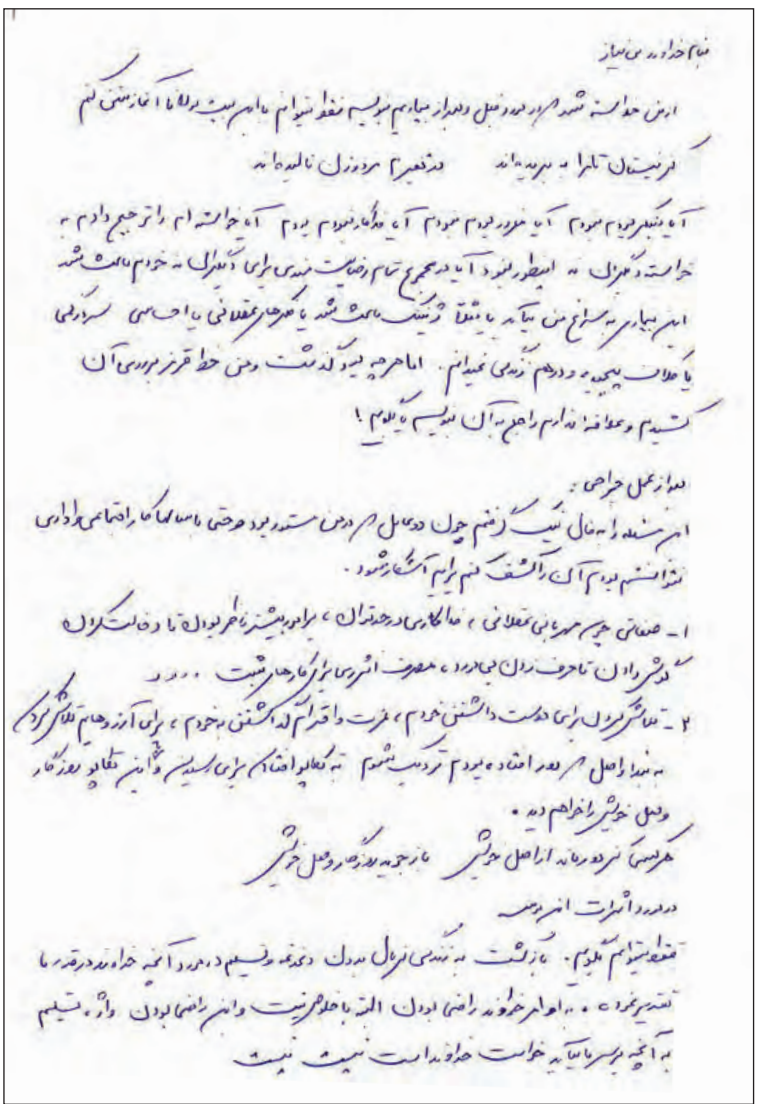 بنام خداوند بی نیاز
از من خواسته شد که در مورد قبل و بعد از بیماریم بنویسم فقط میتوانم با این بیت مولانا آغاز سخن کنم
کز نیستان تا مرا ببریده اند در نفیرم مرد و زن نالیده اند
آیا متکبر بودم نبودم آیا مغرور بودم نبودم آیا فداکار نبودم بودم آیا خواسته ام را ترجیح دادم به
خواسته دیگران نه اینطور نبود آیا در مجموع تمام رضایت مندی برای دیگران نه خودم باعث شد
این بیماری به سراغ من بیاید یا مثلاً ژنتیک باعث شد یا فکرهای عقلانی یا احساسی سرکوبی
یا کلاف پیچیده و درهم زندگی نمیدانم. اما هرچه بود گذشت و من خط قرمز بر روی آن
کشیدم و علاقه ندارم راجع به آن بنویسم یا بگویم!
بعد از عمل جراحی:
این مسئله را به فال نیک گرفتم چون دو عامل که در من مستور بود و حتی با سالها کار اجتماعی و اداری
نتوانستم بودم آن را کشف کنم برایم آشکار شود.
۱- صفاتی چون مهربانی عقلانی، فداکاری در حد توان، در امور بیشتر ناظر بودن تا دخالت کردن
گوش دادن تا حرف زدن بی مورد، مصرف انرژی برای کارهای مثبت ....
۲- تلاش کردن برای دوست داشتن خودم، عزت و احترام گذاشتن به خودم، برای آرزوهایم تلاش کردن
به مبدا و اصل که دور افتاده بودم نزدیک شوم به تکاپو افتادن برای رسیدن و این تکاپو روزگار
وصل خویش را خواهم دید.
هر کسی کز دور ماند از اصل خویش باز جوید روزگار وصل خویش
در مورد اثرات این
فقط میتوانم بگویم. بازگشت به زندگی نرمال بدون دغدغه و تسلیم در مورد آنچه خداوند در قدر ما
تقدیر نموده، به اوامر خداوند راضی بودن البته با خلوص نیت و این راضی بودن واژه تسلیم
به آنچه بر سر ما بیاید خواست خداوند است نیست نیست